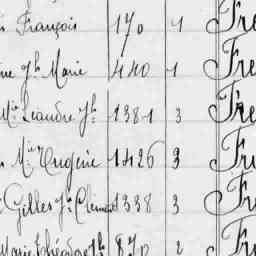 François 170 1 Fre
Jh Marie 440 1 Fre
Mie Léandre Jh 1381 3 Fre
Mie Eugénie 1426 3 Fre
Gilles Jh Clément 1338 3 Fre
Marie 870 2 Fre